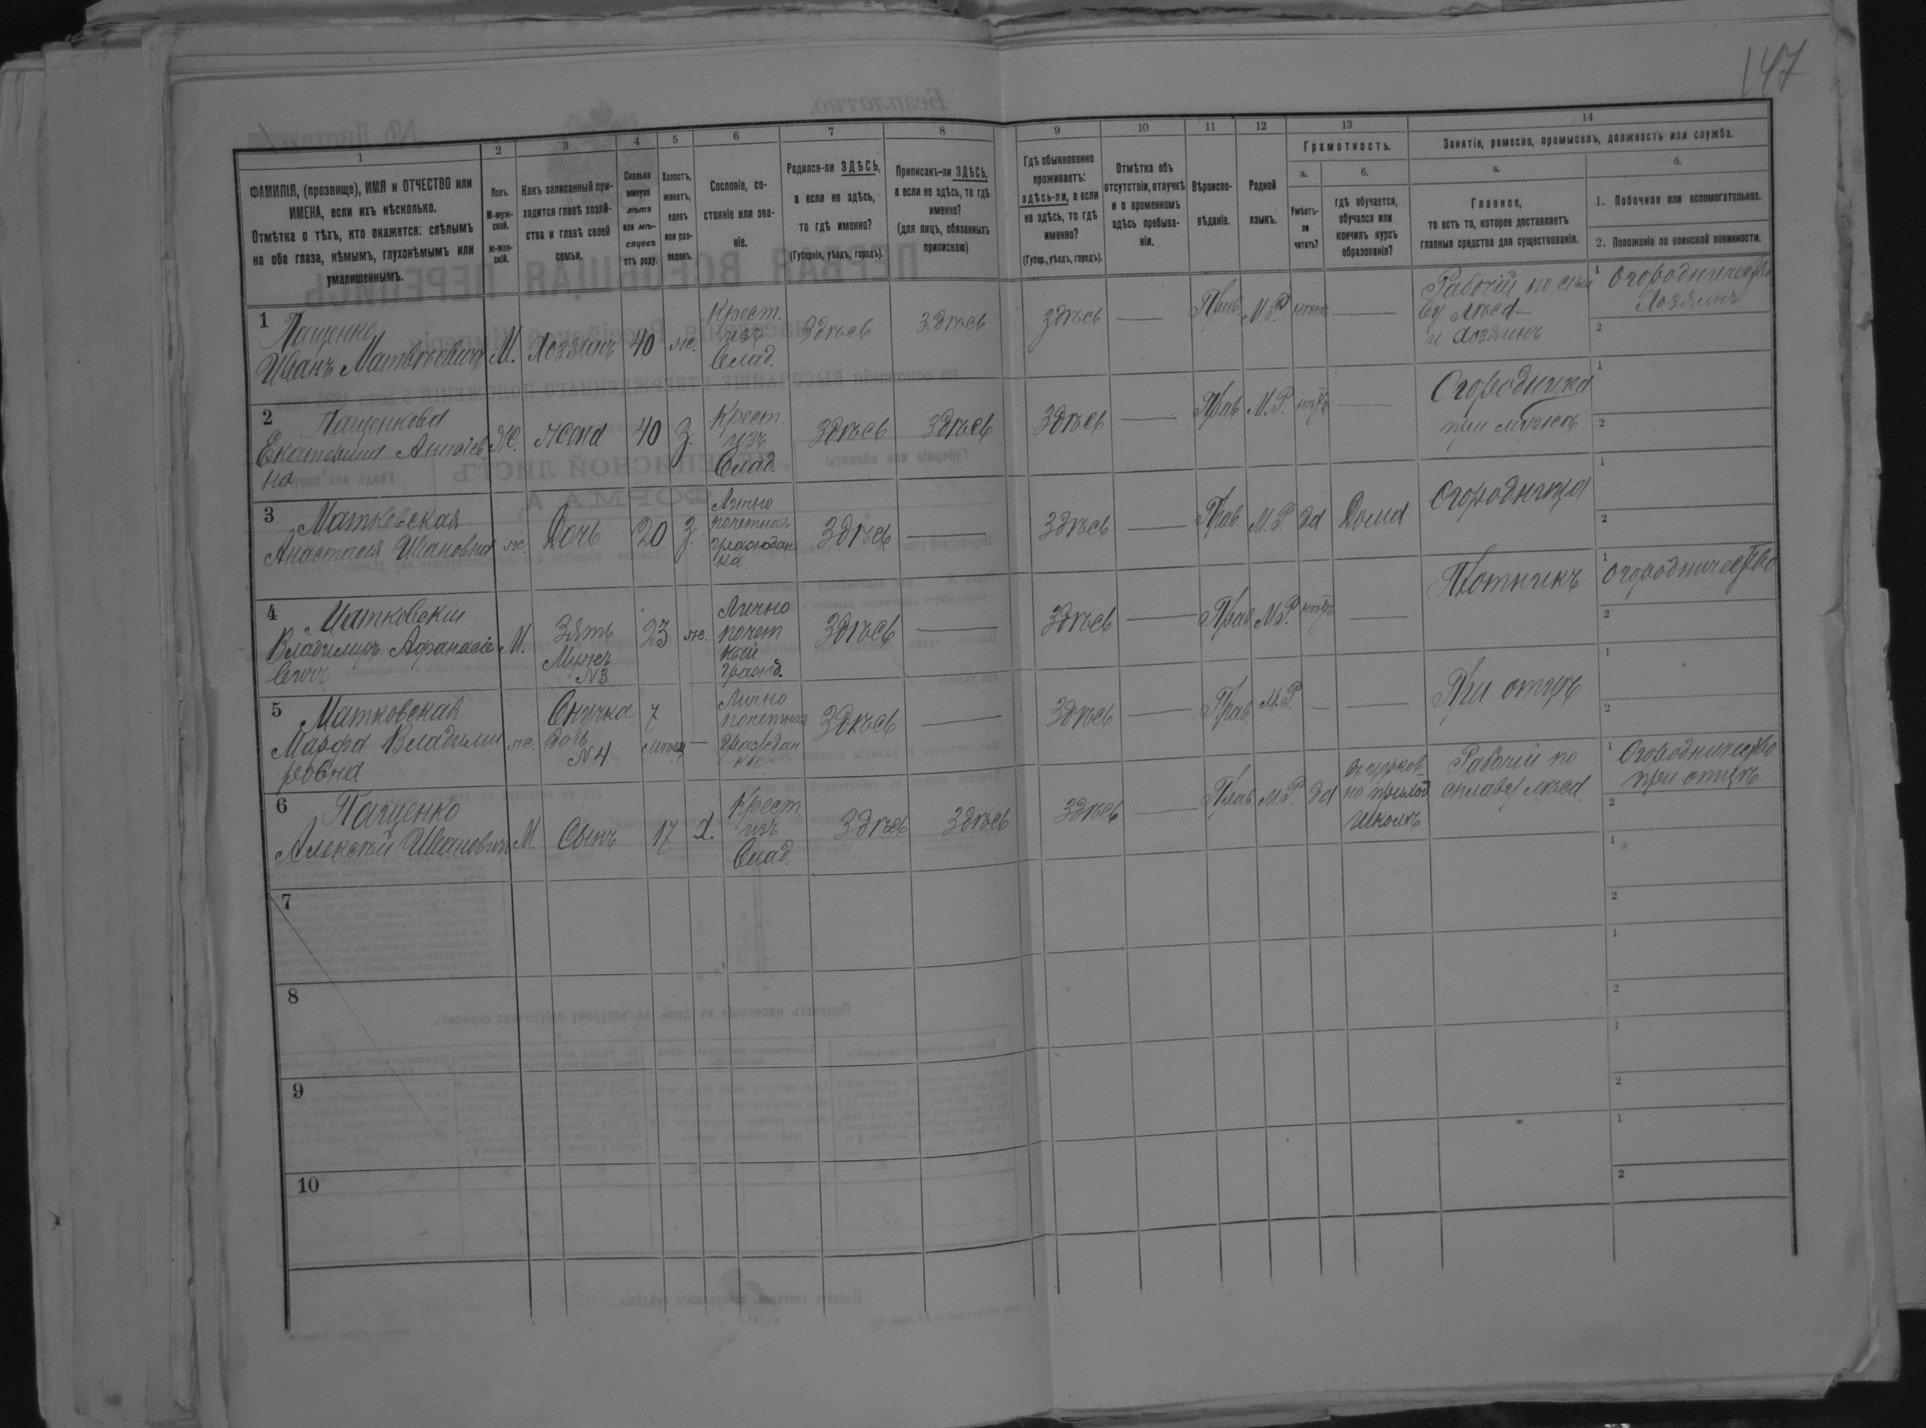 147
1
2
3
4
5
6
7
8
9
10
11
12
13
14
ФАМИЛІЯ, (прозвище), ИМЯ и ОТЧЕСТВО или
ИМЕНА, если ихъ нѣсколько.
Отмѣтка о тѣхъ, кто окажется: слѣпымъ
на оба глаза, нѣмымъ, глухонѣмымъ или
умалишеннымъ.
Полъ.
М-муж-
ской.
Ж-жен-
скій.
Какъ записанный при-
ходится главѣ хозяй-
ства и главѣ своей
семьи.
Сколько
минуло
лѣтъ
или мѣ-
сяцевъ
отъ роду.
Холостъ,
женатъ,
вдовъ
или раз-
веденъ.
Сословіе, со-
стояніе или зва-
ніе.
Родился-ли ЗДѢСЬ,
а если не здѣсь,
то гдѣ именно?
(Губернія, уѣздъ, городъ).
Приписанъ-ли ЗДѢСЬ,
а если не здѣсь, то гдѣ
именно?
(для лицъ, обязанныхъ
припискою)
Гдѣ обыкновенно
проживаетъ:
здѣсь-ли, а если
не здѣсь, то гдѣ
именно?
(Губер., уѣздъ, городъ).
Отмѣтка объ
отсутствіи, отлучкѣ
и о временномъ
здѣсь пребыва-
ніи.
Вѣроиспо-
вѣданіе.
Родной
языкъ.
Грамотность.
а.
Умѣетъ-
ли
читать?
б.
гдѣ обучается,
обучался или
кончилъ курсъ
образованія?
Занятіе, ремесло, промыселъ, должность или служба.
а.
Главное,
то есть то, которое доставляетъ
главныя средства для существованія.
б.
1. Побочное или вспомогательное.
2. Положеніе по воинской повинности.
1 Пащенко
Иванъ Матвѣевичъ М. Хозяинъ 40 ж. Крест. изъ Влад. Здѣсь Здѣсь здѣсь — Прав. М.Р. —
Рабочій по
и Хозяинъ
1 Огородничество
Хозяинъ
2
2 Пащенкова
Екатерина
на Ж. жена 40 З. Крест. изъ Влад. здѣсь здѣсь здѣсь — Прав М.Р. нѣтъ —
Огородница
при мужѣ
1
2
3 Матковская
Анастасія Ивановна ж. Дочь 20 З. Лично почетная граждан ка. Здѣсь — Здѣсь — Прав. М.Р. да Дома
Огородница
1
2
4 Матковскій
Владимиръ Афанасіе
вичъ М. Зять Мужъ N3 23 ж. Лично почет ный гражд. Здѣсь — Здѣсь — Прав М.Р. нѣтъ —
Плотникъ
1 Огородничество
2
5 Матковская
Марфа Владими
ровна ж. Внучка дочь N4 7 мѣсяц — Лично почетная граждан ка Здѣсь — Здѣсь — Прав М.Р. — —
При отцѣ
1
2
6 Пащенко
Алексѣй Ивановичъ М. Сынъ 17 Х. Крест изъ Влад. Здѣсь Здѣсь здѣсь — Прав М.Р. да въ церков- но приход школѣ
Рабочій по
сплаву лѣса.
1 Огородничество
при отцѣ
2
7
1
2
8
1
2
9
1
2
10
1
2